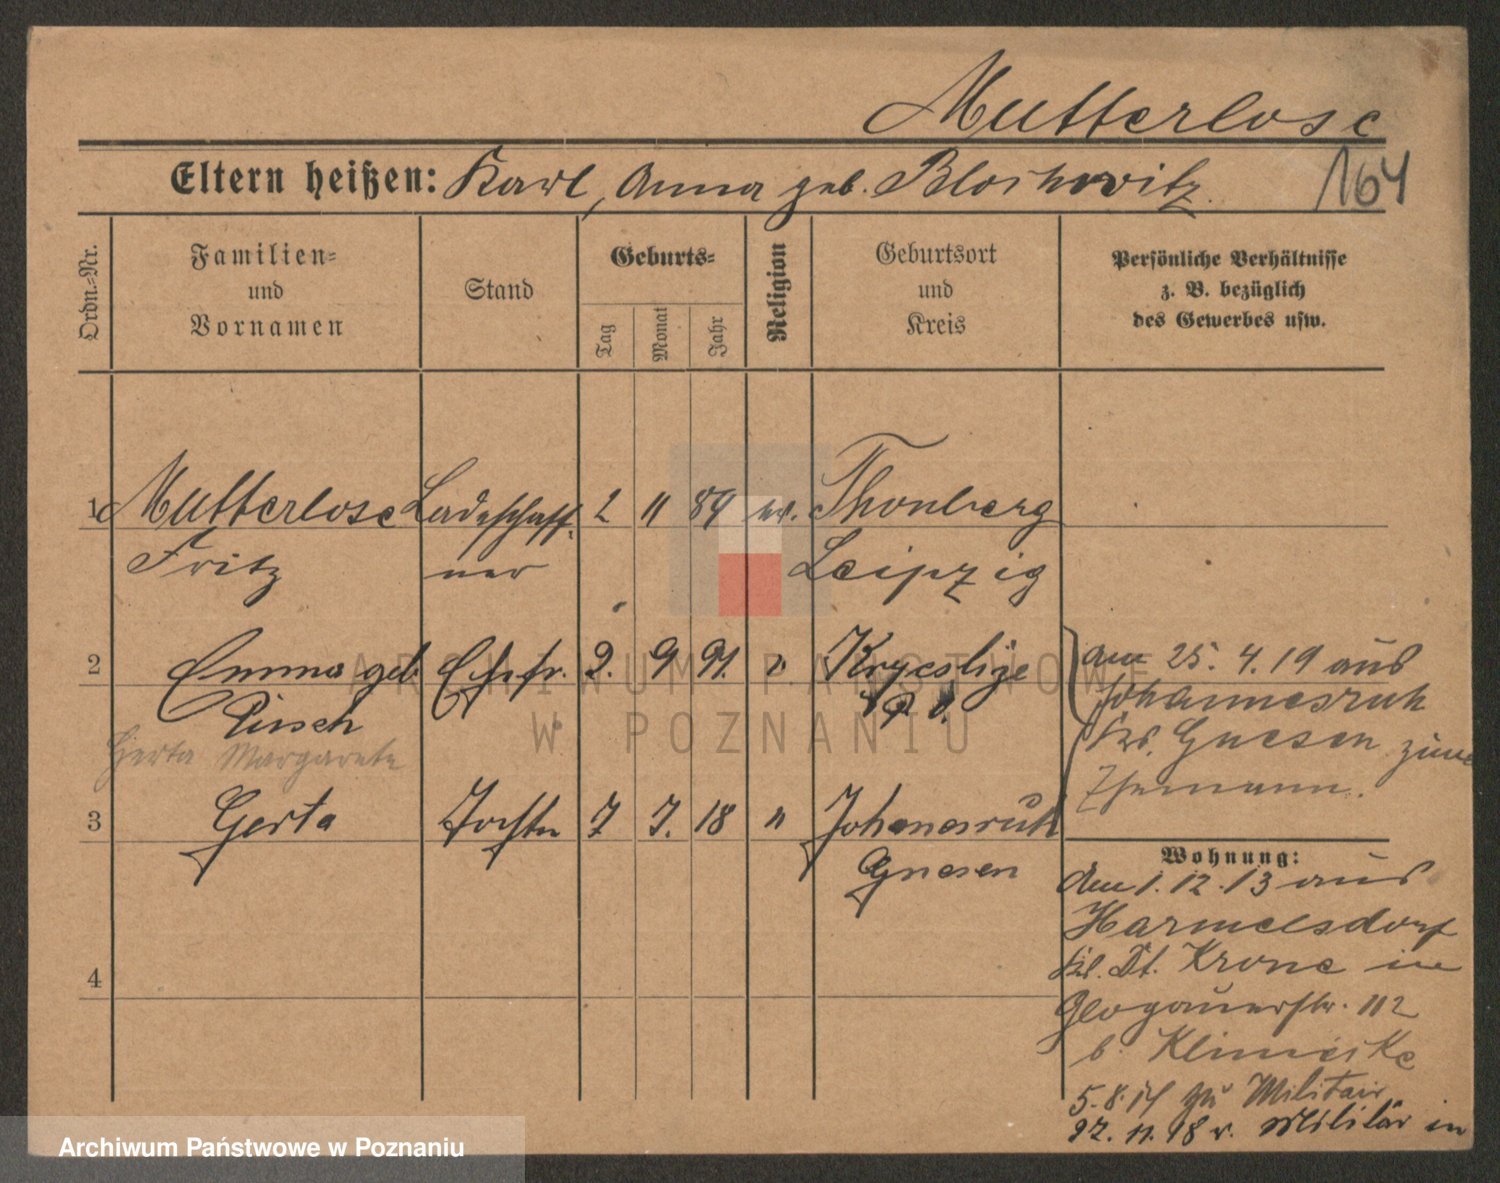 Mutterlose
Eltern heißen: Karl, Anna geb.
164
Ordn.-Nr.
Familien-
und
Vornamen
Stand
Geburts-
Tag
Monat
Jahr
Religion
Geburtsort
und
Kreis
Persönliche Verhältnisse
z. B. bezüglich
des Gewerbes usw.
1 Mutterlose Ladeschaff- 2 11 84 ev. Thonberg
Fritz ner Leipzig
2 Emma geb. Ehefr. 2. 9 91. "
Pirsch
Gerta Margarete
3 Gerta Tochter 7 7. 18 " Johannesruh
Gnesen
4
am 25. 4. 19 aus
Johannesruh
Krs. Gnesen zum
Ehemann.
Wohnung:
am 1. 12. 13 aus
Harmelsdorf
Kr. Dt. Krone in
Glogauerstr. 112
b.
5. 8. 14 zu Militair
27. 11. 18 v. Militär in
ARCHIWUM PAŃSTWOWE
W POZNANIU
Archiwum Państwowe w Poznaniu